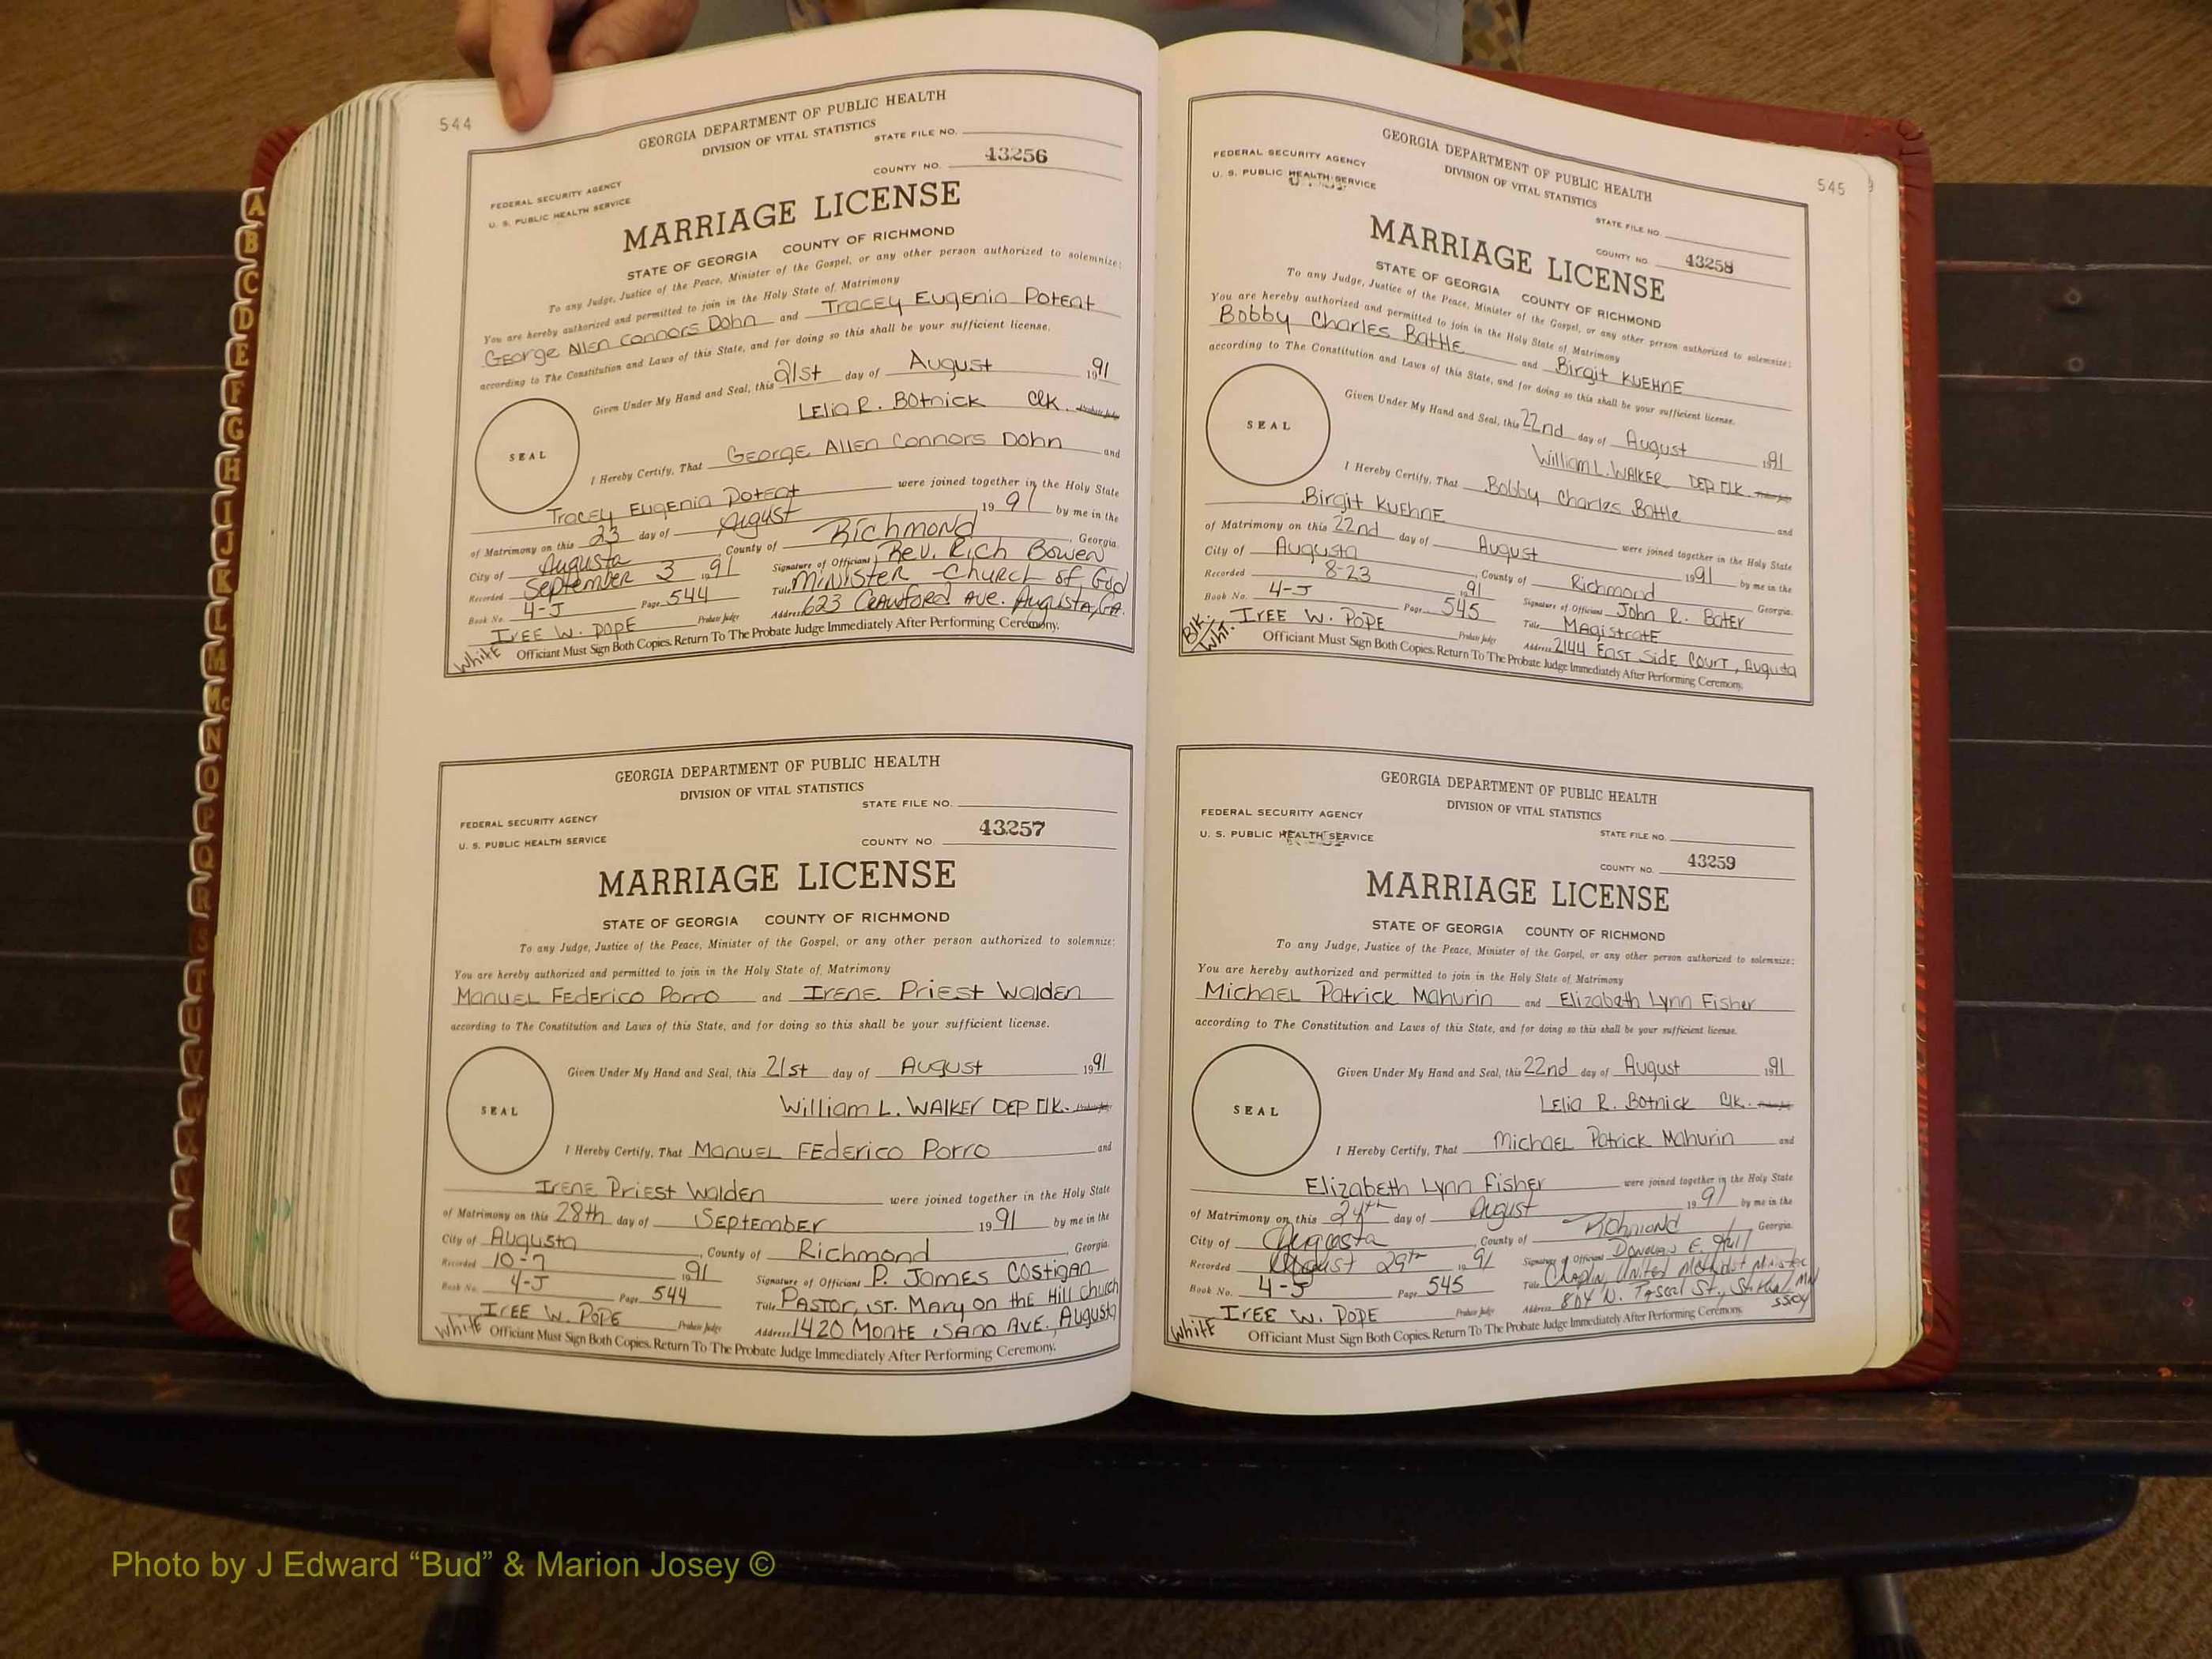 544
GEORGIA DEPARTMENT OF PUBLIC HEALTH
DIVISION OF VITAL STATISTICS
STATE FILE NO.
FEDERAL SECURITY AGENCY
U. S. PUBLIC HEALTH SERVICE
COUNTY NO. 43256
MARRIAGE LICENSE
STATE OF GEORGIA COUNTY OF RICHMOND
To any Judge, Justice of the Peace, Minister of the Gospel, or any other person authorized to solemnize:
You are hereby authorized and permitted to join in the Holy State of Matrimony
George Allen Connors Dohn and Tracey Eugenia Poteat
according to The Constitution and Laws of this State, and for doing so this shall be your sufficient license.
Given Under My Hand and Seal, this 21st day of August 1991
Lelia R. Botnick Clk. Probate Judge
SEAL
I Hereby Certify, That George Allen Connors Dohn and
Tracey Eugenia Poteat were joined together in the Holy State
of Matrimony on this 23 day of August 1991 by me in the
City of Augusta, County of Richmond, Georgia.
Recorded September 3 1991 Signature of Officiant Rev. Rich Bowen
Book No. 4-J Page 544 Title Minister - Church of God
Iree W. Pope Probate Judge Address 623 Crawford Ave. Augusta, GA.
White Officiant Must Sign Both Copies. Return To The Probate Judge Immediately After Performing Ceremony.
GEORGIA DEPARTMENT OF PUBLIC HEALTH
DIVISION OF VITAL STATISTICS
STATE FILE NO.
FEDERAL SECURITY AGENCY
U. S. PUBLIC HEALTH SERVICE
COUNTY NO. 43257
MARRIAGE LICENSE
STATE OF GEORGIA COUNTY OF RICHMOND
To any Judge, Justice of the Peace, Minister of the Gospel, or any other person authorized to solemnize:
You are hereby authorized and permitted to join in the Holy State of Matrimony
Manuel Federico Porro and Irene Priest Walden
according to The Constitution and Laws of this State, and for doing so this shall be your sufficient license.
Given Under My Hand and Seal, this 21st day of August 1991
William L. Walker Dep Clk. Probate Judge
SEAL
I Hereby Certify, That Manuel Federico Porro and
Irene Priest Walden were joined together in the Holy State
of Matrimony on this 28th day of September 1991 by me in the
City of Augusta, County of Richmond, Georgia.
Recorded 10-7 1991 Signature of Officiant P. James Costigan
Book No. 4-J Page 544 Title Pastor, St. Mary on the Hill Church
Iree W. Pope Probate Judge Address 1420 Monte Sano Ave. Augusta
White Officiant Must Sign Both Copies. Return To The Probate Judge Immediately After Performing Ceremony.
545
GEORGIA DEPARTMENT OF PUBLIC HEALTH
DIVISION OF VITAL STATISTICS
FEDERAL SECURITY AGENCY
U. S. PUBLIC HEALTH SERVICE
STATE FILE NO.
COUNTY NO. 43258
MARRIAGE LICENSE
STATE OF GEORGIA COUNTY OF RICHMOND
To any Judge, Justice of the Peace, Minister of the Gospel, or any other person authorized to solemnize:
You are hereby authorized and permitted to join in the Holy State of Matrimony
Bobby Charles Battle and Birgit Kuehne
according to The Constitution and Laws of this State, and for doing so this shall be your sufficient license.
Given Under My Hand and Seal, this 22nd day of August 1991
William L. Walker Dep Clk. Probate Judge
SEAL
I Hereby Certify, That Bobby Charles Battle and
Birgit Kuehne were joined together in the Holy State
of Matrimony on this 22nd day of August 1991 by me in the
City of Augusta, County of Richmond Georgia.
Recorded 8-23 1991 Signature of Officiant John R. Bater
Book No. 4-J Page 545 Title Magistrate
Iree W. Pope Probate Judge Address 2144 East Side Court, Augusta
Blk. Wht. Officiant Must Sign Both Copies. Return To The Probate Judge Immediately After Performing Ceremony.
GEORGIA DEPARTMENT OF PUBLIC HEALTH
DIVISION OF VITAL STATISTICS
FEDERAL SECURITY AGENCY
U. S. PUBLIC HEALTH SERVICE
STATE FILE NO.
COUNTY NO. 43259
MARRIAGE LICENSE
STATE OF GEORGIA COUNTY OF RICHMOND
To any Judge, Justice of the Peace, Minister of the Gospel, or any other person authorized to solemnize:
You are hereby authorized and permitted to join in the Holy State of Matrimony
Michael Patrick Mahurin and Elizabeth Lynn Fisher
according to The Constitution and Laws of this State, and for doing so this shall be your sufficient license.
Given Under My Hand and Seal, this 22nd day of August 1991
Lelia R. Botnick Clk. Probate Judge
SEAL
I Hereby Certify, That Michael Patrick Mahurin and
Elizabeth Lynn Fisher were joined together in the Holy State
of Matrimony on this 24th day of August 1991 by me in the
City of Augusta County of Richmond Georgia.
Recorded August 29th 1991 Signature of Officiant Donovan E.
Book No. 4-J Page 545 Title United Methodist Minister
Iree W. Pope Probate Judge Address 804 N. St., MN
White Officiant Must Sign Both Copies. Return To The Probate Judge Immediately After Performing Ceremony.
A
B
C
D
E
F
G
H
I
J
K
L
M
Mc
N
O
P
Q
R
S
T
U
V
W
Photo by J Edward “Bud” & Marion Josey ©